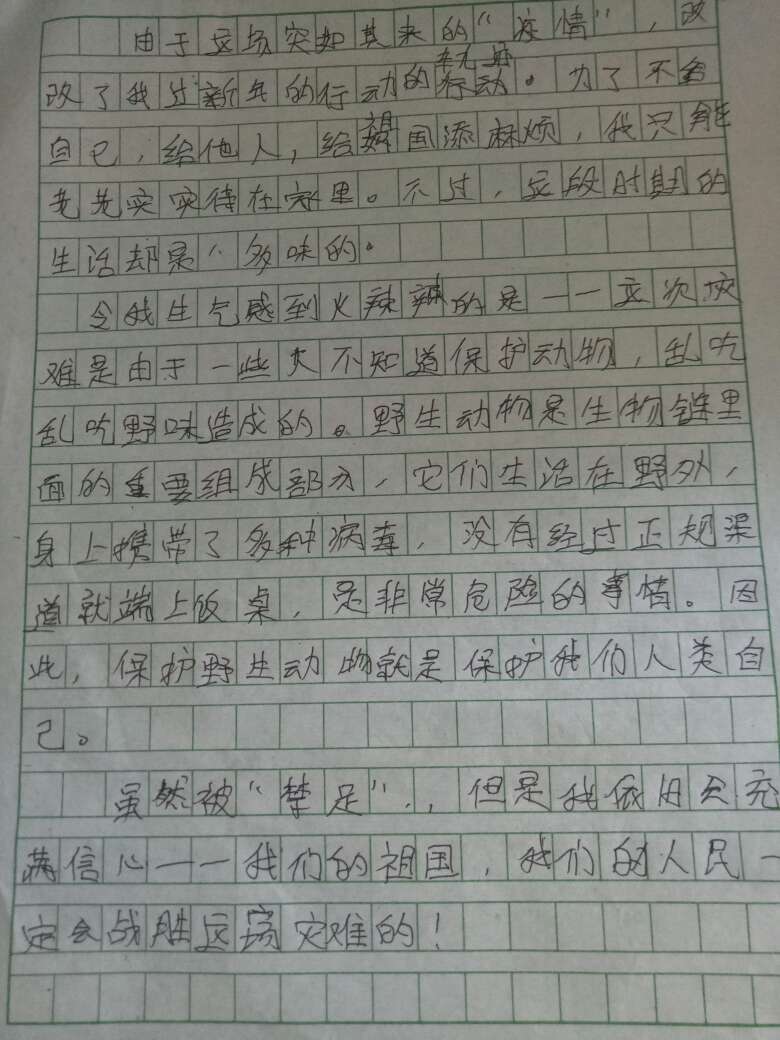 由于这场突如其来的“疫情”，改
改了我过新年的行动的轨迹。为了不给
自己，给他人，给祖国添麻烦，我只能
老老实实待在家里。不过，这段时期的
生活却是多味的。
令我生气感到火辣辣的是——这次灾
难是由于一些人不知道保护动物，乱吃
乱吃野味造成的。野生动物是生物链里
面的重要组成部分，它们生活在野外，
身上携带了多种病毒，没有经过正规渠
道就端上饭桌，是非常危险的事情。因
此，保护野生动物就是保护我们人类自
己。
虽然被“禁足”，但是我依旧充
满信心——我们的祖国，我们的人民一
定会战胜这场灾难的！